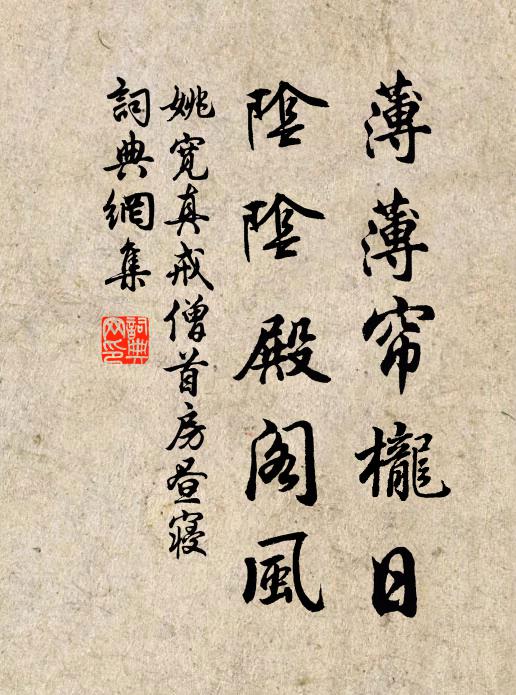 薄薄帘櫳日
陰陰殿閣風
姚寬真戒僧首房晝寢
詞典網集
詞典網印